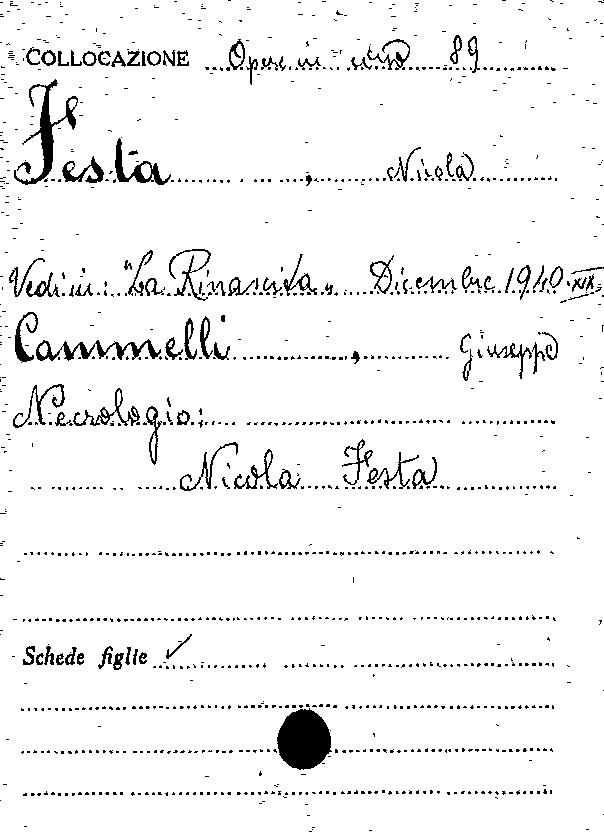 COLLOCAZIONE Opere in corso 89
Festa, Nicola
Vedi in: "La Rinascita„ Dicembre 1940.XIX.
Cammelli, Giuseppe
Necrologio:
Nicola Festa
Schede figlie ✓